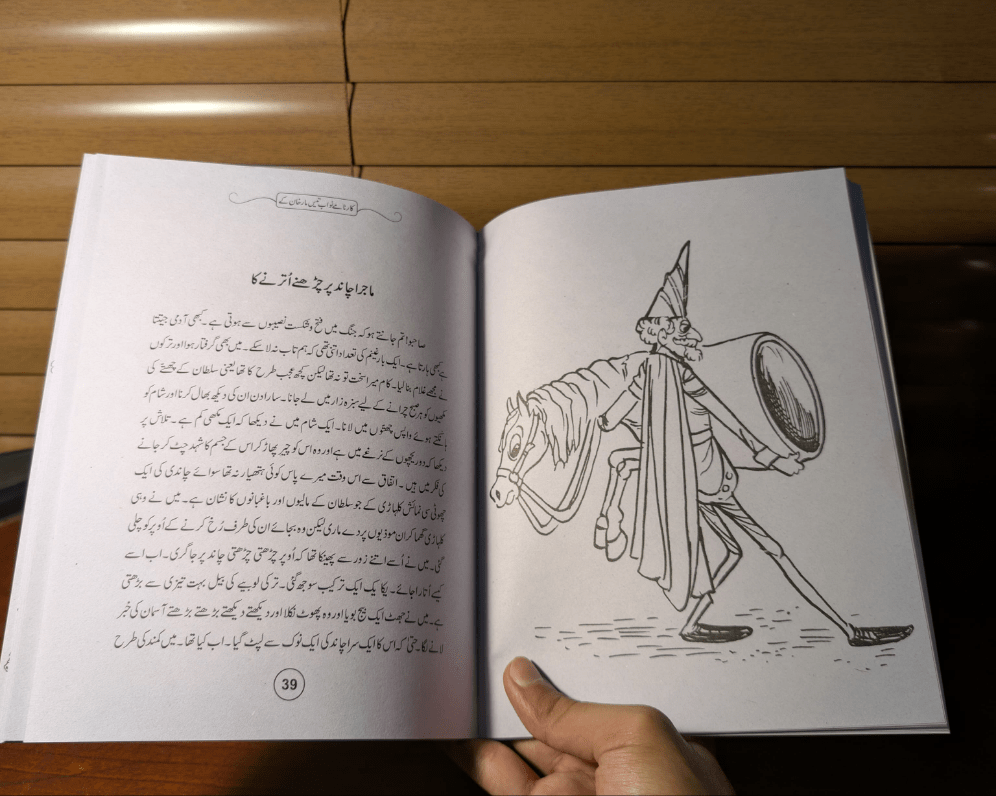 کارنامے نواب تیس مار خان کے
ماجرا چاند پر چڑھنے اُترنے کا
صاحبو! تم جانتے ہو کہ جنگ میں فتح و شکست نصیبوں سے ہوتی ہے۔ کبھی آدمی جیتتا
ہے کبھی ہارتا ہے۔ ایک بار غنیم کی تعداد اتنی تھی کہ ہم تاب نہ لا سکے۔ میں بھی گرفتار ہوا اور ترکوں
نے مجھے غلام بنا لیا۔ کام میرا سخت تو نہ تھا لیکن کچھ عجب طرح کا تھا یعنی سلطان کے چھتّے کی
مکھیوں کو ہر صبح چرانے کے لیے سبزہ زار میں لے جانا۔ سارا دن ان کی دیکھ بھال کرنا اور شام کو
ہانکتے ہوئے واپس چھتوں میں لانا۔ ایک شام میں نے دیکھا کہ ایک مکھی کم ہے۔ تلاش پر
دیکھا کہ دو ریچھوں کے نرغے میں ہے اور وہ اس کو چیر پھاڑ کر اس کے جسم کا شہد چٹ کر جانے
کی فکر میں ہیں۔ اتفاق سے اس وقت میرے پاس کوئی ہتھیار نہ تھا سوائے چاندی کی ایک
چھوٹی سی نمائشی کلہاڑی کے جو سلطان کے مالیوں اور باغبانوں کا نشان ہے۔ میں نے وہی
کلہاڑی گھما کر ان موذیوں پر دے ماری لیکن وہ بجائے ان کی طرف رُخ کرنے کے اُوپر کو چلی
گئی۔ میں نے اُسے اتنے زور سے پھینکا تھا کہ اُوپر چڑھتی چڑھتی چاند پر جا گری۔ اب اسے
کیسے اُتارا جائے۔ یکایک ایک ترکیب سوجھ گئی۔ ترکی لوبیے کی بیل بہت تیزی سے بڑھتی
ہے۔ میں نے جھٹ ایک بیج بویا اور وہ پھوٹ نکلا اور دیکھتے دیکھتے بڑھتے بڑھتے آسمان کی خبر
لانے لگا۔ حتیٰ کہ اس کا ایک سرا چاند کی ایک نوک سے لپٹ گیا۔ اب کیا تھا۔ میں کمند کی طرح
39